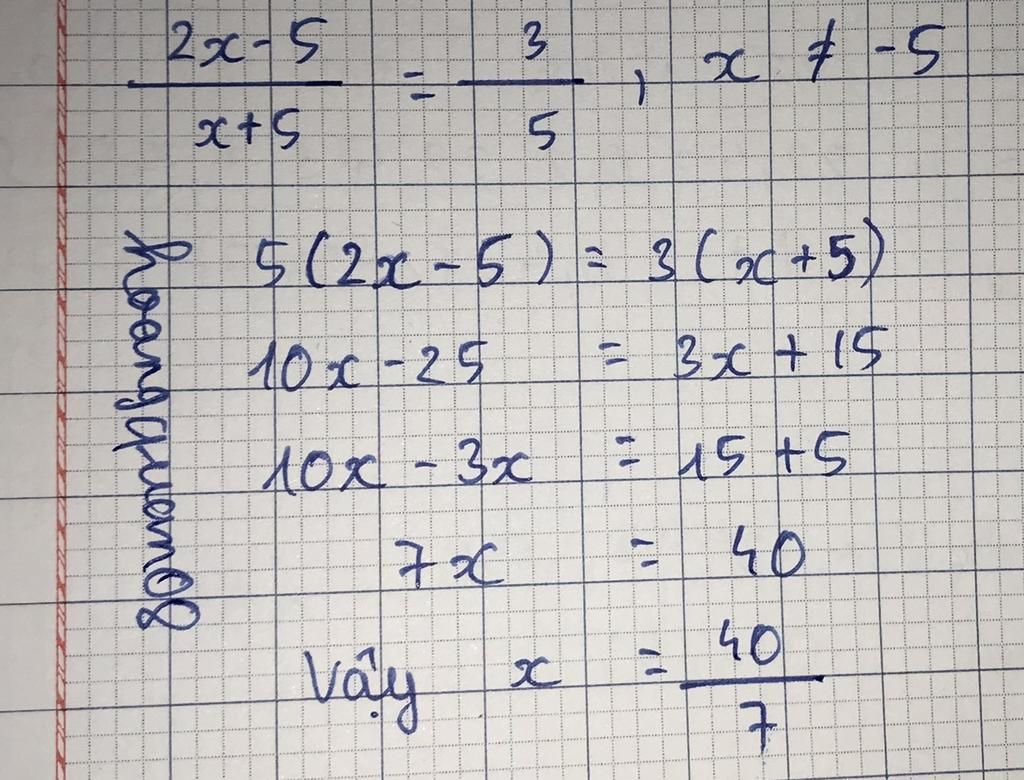 2x - 5 / x + 5 = 3 / 5 , x ≠ -5
5(2x - 5) = 3(x + 5)
10x - 25 = 3x + 15
10x - 3x = 15 + 5
7x = 40
Vậy x = 40 / 7